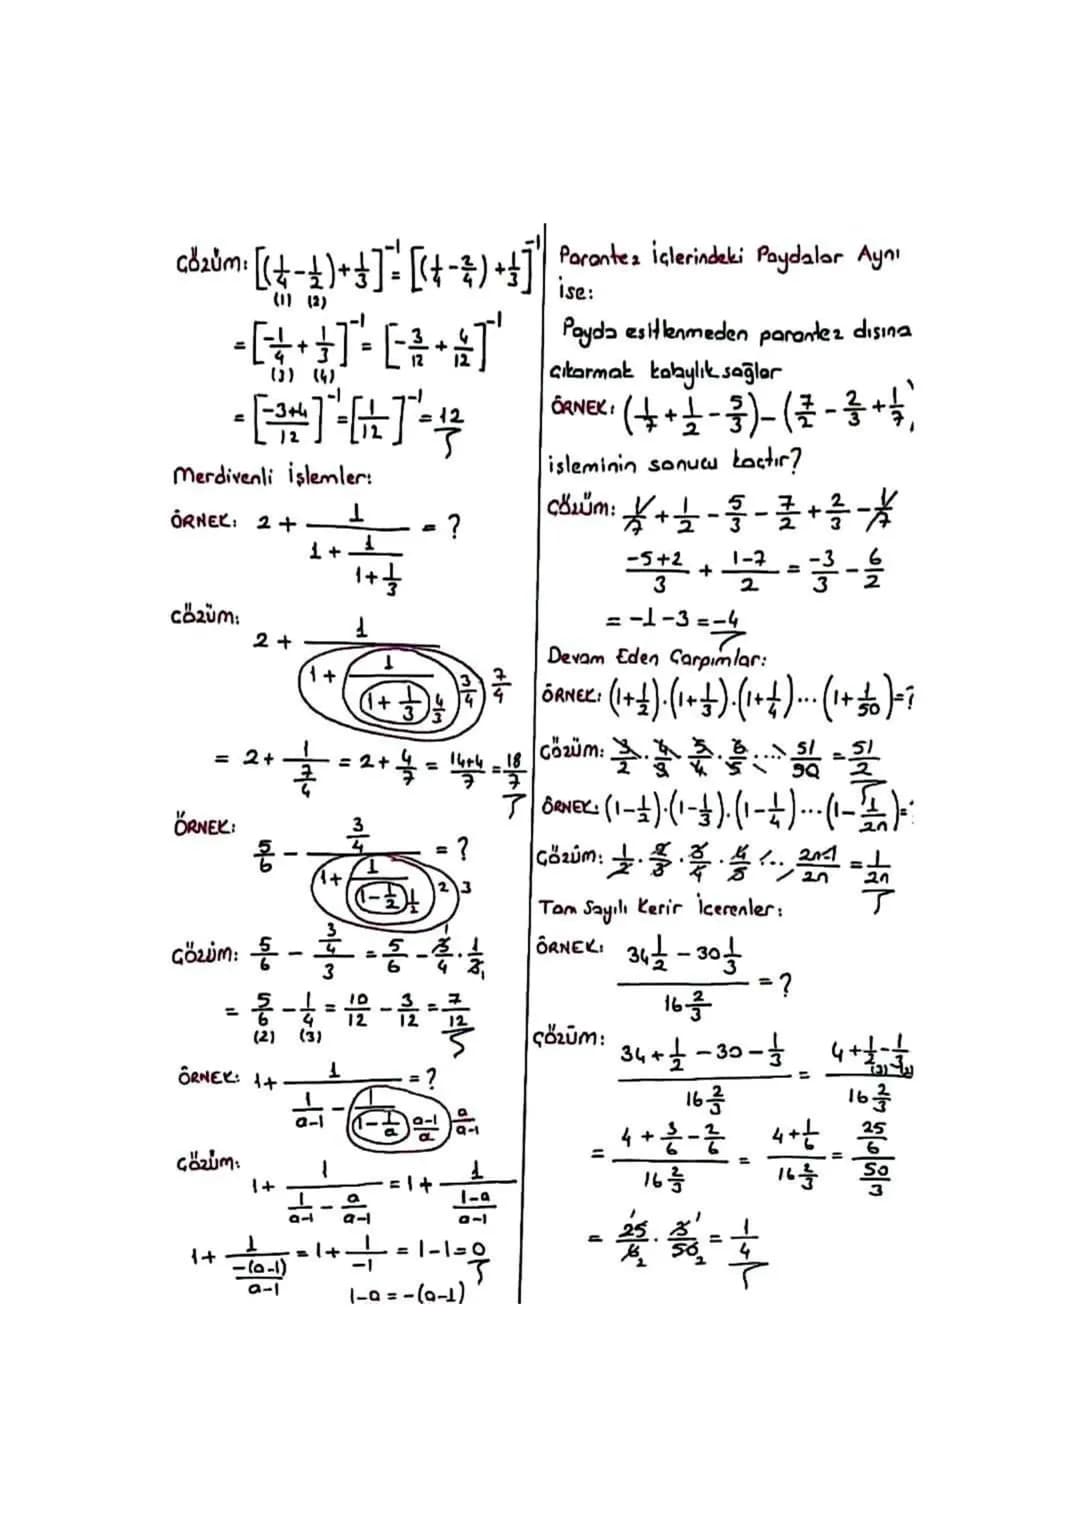 Çözüm: [(1/4 - 1/2) + 1/3]^-1 = [(1/4 - 2/4) + 1/3]^-1
(1) (2)
= [-1/4 + 1/3]^-1 = [-3/12 + 4/12]^-1
(3) (4)
= [-3+4/12]^-1 = [1/12]^-1 = 12
Merdivenli işlemler:
ÖRNEK: 2 + 1/(1 + 1/(1 + 1/3)) = ?
Çözüm:
2 + 1/(1 + 1/(1 + 1/3)) 4/3 3/4 7/4
= 2 + 1/(7/4) = 2 + 4/7 = 14+4/7 = 18/7
ÖRNEK:
5/6 - (3/4)/(1 + 1/(1 - 1/2)) 1/2 2 3 = ?
Çözüm: 5/6 - (3/4)/3 = 5/6 - 3/4 . 1/3
= 5/6 - 1/4 = 10/12 - 3/12 = 7/12
(2) (3)
ÖRNEK: 1 + 1/(1/(a-1) - 1/(1 - 1/a)) a-1/a a/a-1 = ?
Çözüm:
1 + 1/(1/(a-1) - a/(a-1)) = 1 + 1/((1-a)/(a-1))
1 + 1/(-(a-1)/(a-1)) = 1 + 1/-1 = 1-1 = 0
1-a = -(a-1)
Parantez içlerindeki Paydalar Aynı
ise:
Payda esitlenmeden parantez dısına
çıkarmak kolaylık sağlar
ÖRNEK: (1/7 + 1/2 - 5/3) - (7/2 - 2/3 + 1/7)
işleminin sonucu kaçtır?
Çözüm: 1/7 + 1/2 - 5/3 - 7/2 + 2/3 - 1/7
-5+2/3 + 1-7/2 = -3/3 - 6/2
= -1-3 = -4
Devam Eden Çarpımlar:
ÖRNEK: (1+1/2).(1+1/3).(1+1/4)...(1+1/50)=?
Çözüm: 3/2 . 4/3 . 5/4 . 6/5 ... 51/50 = 51/2
ÖRNEK: (1-1/2).(1-1/3).(1-1/4)...(1-1/2n)=?
Çözüm: 1/2 . 2/3 . 3/4 . 4/5 ... 2n-1/2n = 1/2n
Tam Sayılı Kerir İcerenler:
ÖRNEK: (34 1/2 - 30 1/3)/(16 2/3) = ?
Çözüm:
(34 + 1/2 - 30 - 1/3)/(16 2/3) = (4 + 1/2 - 1/3)/(16 2/3)
(3) (2)
= (4 + 3/6 - 2/6)/(16 2/3) = (4 + 1/6)/(16 2/3) = (25/6)/(50/3)
= 25/6 . 3/50 = 1/4